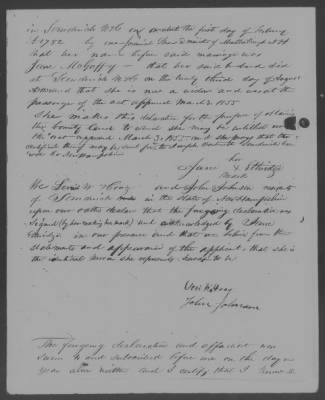 in Sandwich NH on or about the first day of
1782 by one Jeremiah Shaw a minister of
that her name before said marriage was
Jane McGaffey that her said husband died
at Sandwich NH on the twenty third day of August
that she is now a widow and was at the
passage of the act approved March 3. 1855
She makes this declaration for the purpose of obtaining
the bounty land to which she may be entitled under
the act approved March 3. 1855 and she prays that the
certificate may be sent to Sandwich
New Hampshire
her
Jane X
mark
We Levi W Hoag and John Johnson residents
of Sandwich in the State of New Hampshire
upon our oaths declare that the foregoing declaration was
signed (by her making her mark) and acknowledged by Jane
in our presence and that we believe from the
statements and appearance of the applicant that she is
the identical person she represents herself to be
Levi W Hoag
John Johnson
The foregoing declaration and affidavit was
sworn to and subscribed before me on the day &
year above written and I certify that I